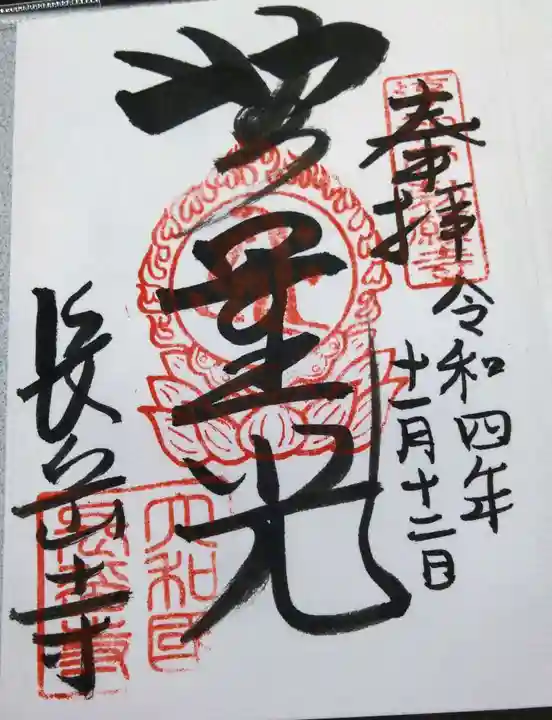 奉拝
令和四年
十一月十二日
無量光
長岳寺
大和國